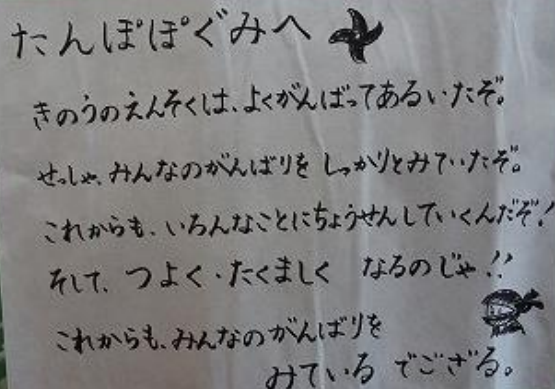 たんぽぽぐみへ
きのうのえんそくは、よくがんばってあるいたぞ。
せっしゃ、みんなのがんばりを しっかりとみていたぞ。
これからも、いろんなことにちょうせんしていくんだぞ!
そして、つよく・たくましく なるのじゃ!!
これからも、みんなのがんばりを
みている でござる。